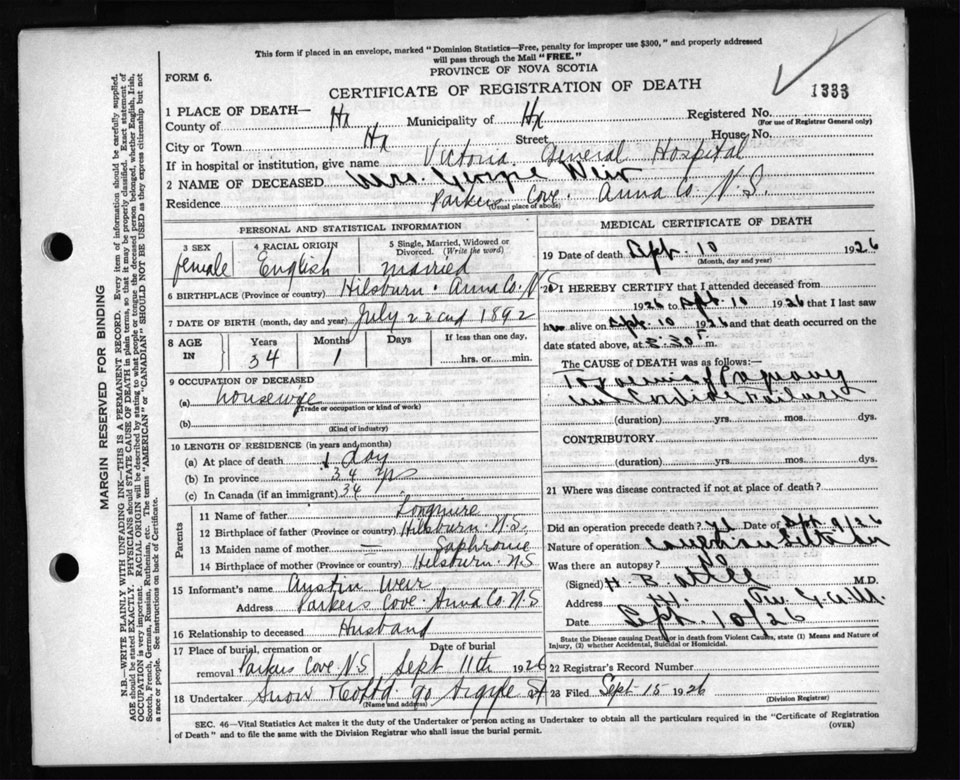 This form if placed in an envelope, marked "Dominion Statistics—Free, penalty for improper use $300," and properly addressed
will pass through the Mail "FREE."
PROVINCE OF NOVA SCOTIA
FORM 6.
CERTIFICATE OF REGISTRATION OF DEATH
1333
1 PLACE OF DEATH—
County of Hx Municipality of Hx Registered No.
(For use of Registrar General only)
City or Town Hx Street House No.
If in hospital or institution, give name Victoria General Hospital
2 NAME OF DECEASED Mrs. Georgie Weir
Residence Parkers Cove. Anna Co. N.S.
(Usual place of abode)
PERSONAL AND STATISTICAL INFORMATION
3 SEX 4 RACIAL ORIGIN 5 Single, Married, Widowed or Divorced. (Write the word)
female English married
6 BIRTHPLACE (Province or country) Hilsburn. Anna Co. N.S
7 DATE OF BIRTH (month, day and year) July 22cnd 1892
8 AGE IN Years Months Days If less than one day,
34 1 hrs. or min.
9 OCCUPATION OF DECEASED
(a) housewife
(Trade or occupation or kind of work)
(b)
(Kind of industry)
10 LENGTH OF RESIDENCE (in years and months)
(a) At place of death 1 day
(b) In province 34 yrs
(c) In Canada (if an immigrant) 34
Parents
11 Name of father Longmire
12 Birthplace of father (Province or country) Hilsburn. N.S.
13 Maiden name of mother — Saphronie
14 Birthplace of mother (Province or country) Hilsburn. N.S
15 Informant's name Austin Weir
Address Parkers Cove. Anna Co. N.S
16 Relationship to deceased Husband
17 Place of burial, cremation or removal Date of burial
Parkers Cove. N.S Sept 11th 1926
18 Undertaker Snow & Co Ltd. 90 Argyle St
(Name and address)
MEDICAL CERTIFICATE OF DEATH
19 Date of death Sept. 10 1926
(Month, day and year)
20 I HEREBY CERTIFY that I attended deceased from
1926 to Sept. 10 1926 that I last saw
h alive on Sept. 10 1926 and that death occurred on the
date stated above, at 8:30 P. m.
The CAUSE OF DEATH was as follows:—
Toxaemia of Pregnancy
Cardiac Failure
(duration) yrs. mos. dys.
CONTRIBUTORY
(duration) yrs. mos. dys.
21 Where was disease contracted if not at place of death?
Did an operation precede death? Yes Date of Sept 9/26
Nature of operation
Was there an autopsy? No
(Signed) H. B. Atlee M.D.
Address
Date Sept. 10/26
State the Disease causing Death, or in death from Violent Causes, state (1) Means and Nature of
Injury, (2) whether Accidental, Suicidal or Homicidal.
22 Registrar's Record Number
23 Filed Sept 15 1926
(Division Registrar)
SEC. 46—Vital Statistics Act makes it the duty of the Undertaker or person acting as Undertaker to obtain all the particulars required in the "Certificate of Registration
of Death" and to file the same with the Division Registrar who shall issue the burial permit.
(OVER)
MARGIN RESERVED FOR BINDING
N.B.—WRITE PLAINLY WITH UNFADING INK—THIS IS A PERMANENT RECORD. Every item of information should be carefully supplied.
AGE should be stated EXACTLY. PHYSICIANS should STATE CAUSE OF DEATH in plain terms, so that it may be properly classified. Exact statement of
OCCUPATION is very important. RACIAL ORIGIN will be described by stating to what people or tongue the deceased person belonged, whether English, Irish,
Scotch, French, German, Russian, Ruthenian, etc. The terms "AMERICAN" or "CANADIAN" SHOULD NOT BE USED as they express citizenship but not
a race or people. See instructions on back of Certificate.